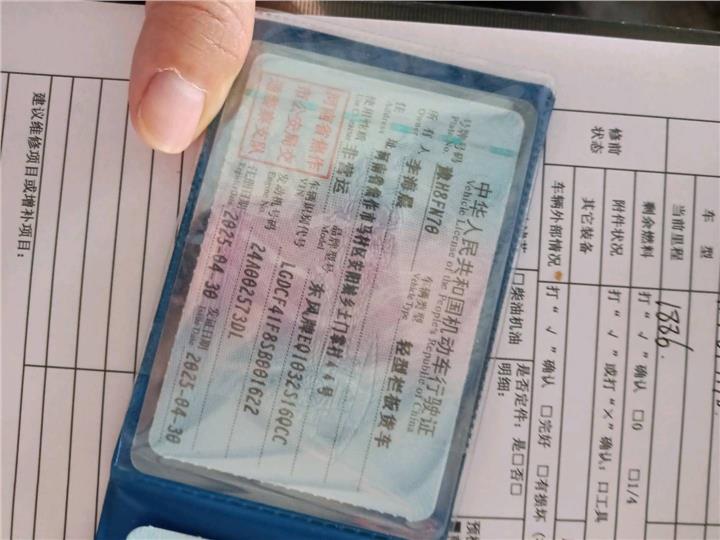 中华人民共和国机动车行驶证
Vehicle License of the People's Republic of China
号牌号码 豫H8FN70 车辆类型 轻型栏板货车
Vehicle Type
所有人 李海晨
Owner
住址 河南省焦作市马村区安阳城乡土门掌村44号
Address
使用性质 非营运 品牌型号 东风牌EQ1032S16QCC
Use Character Model
河南省焦作
市公安局交
通警察支队
车辆识别代号 LGDCF41F8SB001622
VIN
发动机号码 24A0025730L
Engine No.
注册日期 2025-04-30 发证日期 2025-04-30
Register Date Issue Date
车型
修前
状态
当前里程 1836
剩余燃料 打“√”确认 □0 □1/4
附件状况 打“√”或打“×”确认:口工具
其它装备
车辆外部情况 打“√”确认 □完好 □有损坏
□柴油机油
是否定件:是□否□
明细:
预
建议维修项目或增补项目: